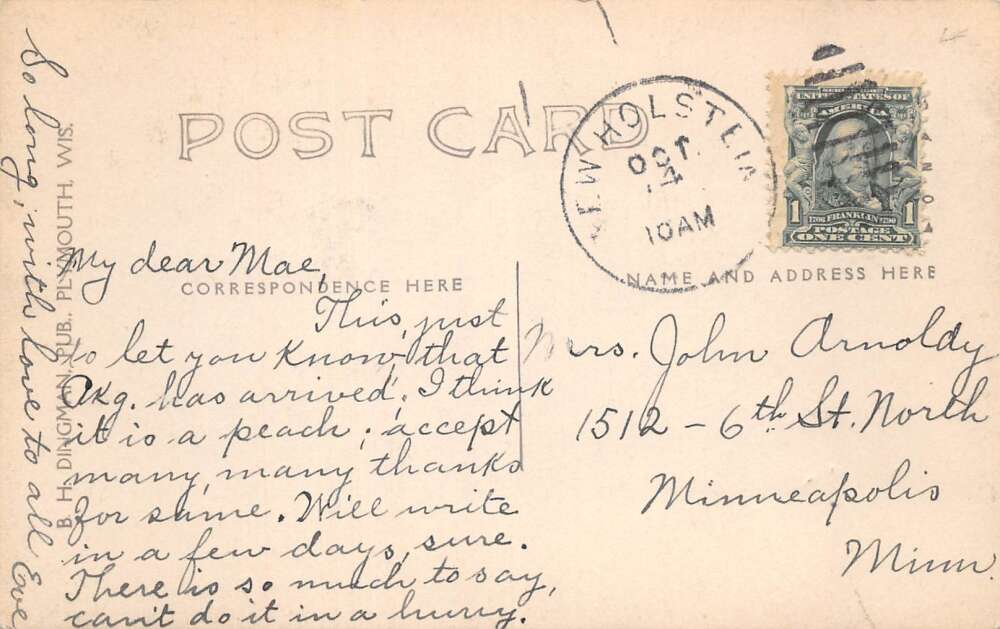 POST CARD
NEW HOLSTEIN
OCT
10AM
SERIES 1902
UNITED STATES OF
AMERICA
1 1706 FRANKLIN 1790 1
POSTAGE
ONE CENT
CORRESPONDENCE HERE
NAME AND ADDRESS HERE
My dear Mae,
This, just
to let you know, that
Pkg. has arrived. I think
it is a peach; accept
many, many thanks
for same. Will write
in a few days, sure.
There is so much to say,
can't do it in a hurry.
So long, with love to all Eve
B. H. DINGMAN, PUB., PLYMOUTH, WIS.
Mrs. John Arnoldy
1512 - 6th St. North
Minneapolis
Minn.